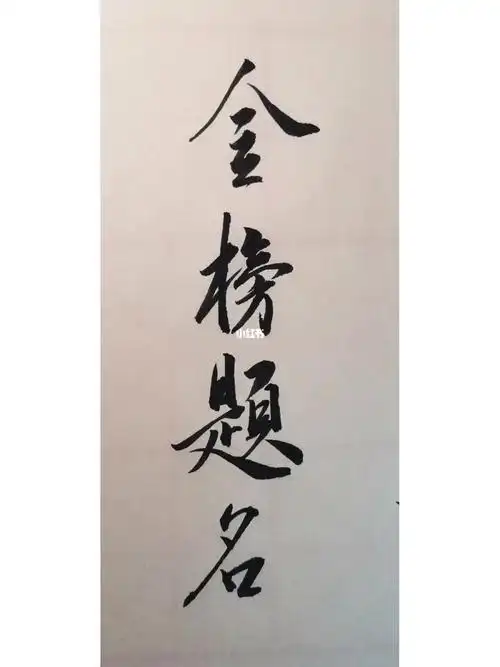 金榜题名
小红书